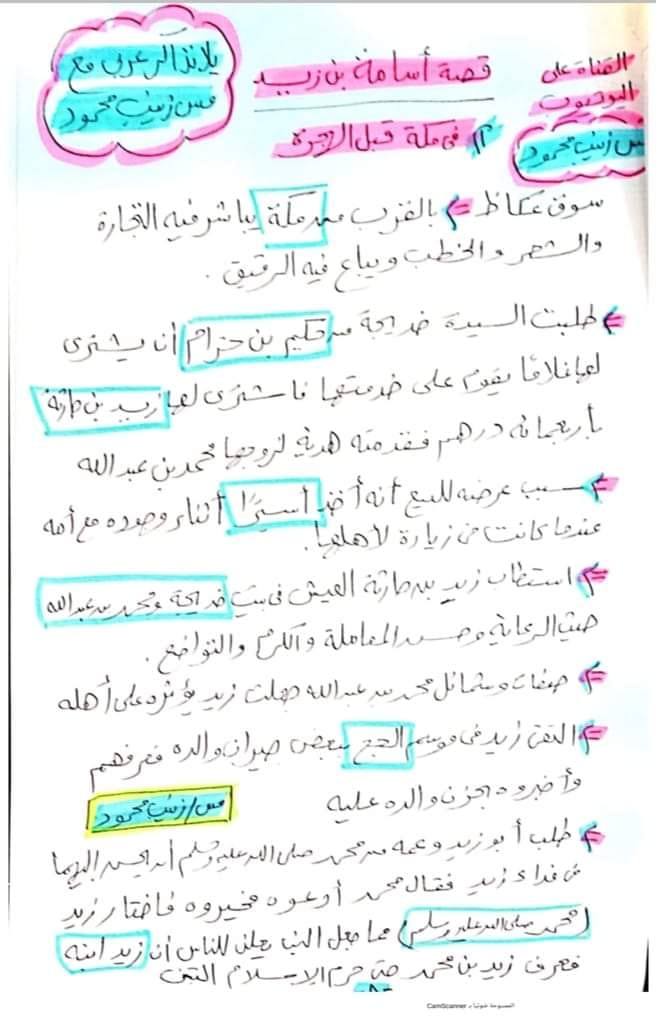 يلا نذاكر عربي مع
مس زينب محمود
قصة أسامة بن زيد
القناة على
اليوتيوب
مس زينب محمود
في مكة قبل الهجرة
سوق عكاظ ⇐ بالقرب من مكة يباشر فيه التجارة
والشعر والخطب ويباع فيه الرقيق .
⇐ طلبت السيدة خديجة من حكيم بن حزام أن يشترى
لها غلامًا يقوم على خدمتها فاشترى لها زيد بن حارثة
بأربعمائة درهم فقدمته هدية لزوجها محمد بن عبد الله
⇐ سبب عرضه للبيع أنه أخذ أسيرًا أثناء وجوده مع أمه
عندما كانت في زيارة لأهلها.
⇐ استطاب زيد بن حارثة العيش في بيت خديجة ومحمد بن عبد الله
حيث الرعاية وحسن المعاملة والكرم والتواضع .
⇐ صفات وشمائل محمد بن عبد الله جعلت زيد يؤثره على أهله
⇐ التقى زيد في موسم الحج ببعض جيران والده فعرفهم
وأخبروه بحزن والده عليه
مس/زينب محمود
⇐ طلب أبو زيد وعمه من محمد صلى الله عليه وسلم أن يحسن إليهما
في فداء زيد فقال محمد أدعوه فخيروه فاختار زيد
(محمد صلى الله عليه وسلم) مما جعل النبي يعلن للناس أن زيد ابنه
فعرف زيد بن محمد حتى حرم الإسلام التبني
الممسوحة ضوئيا بـ CamScanner